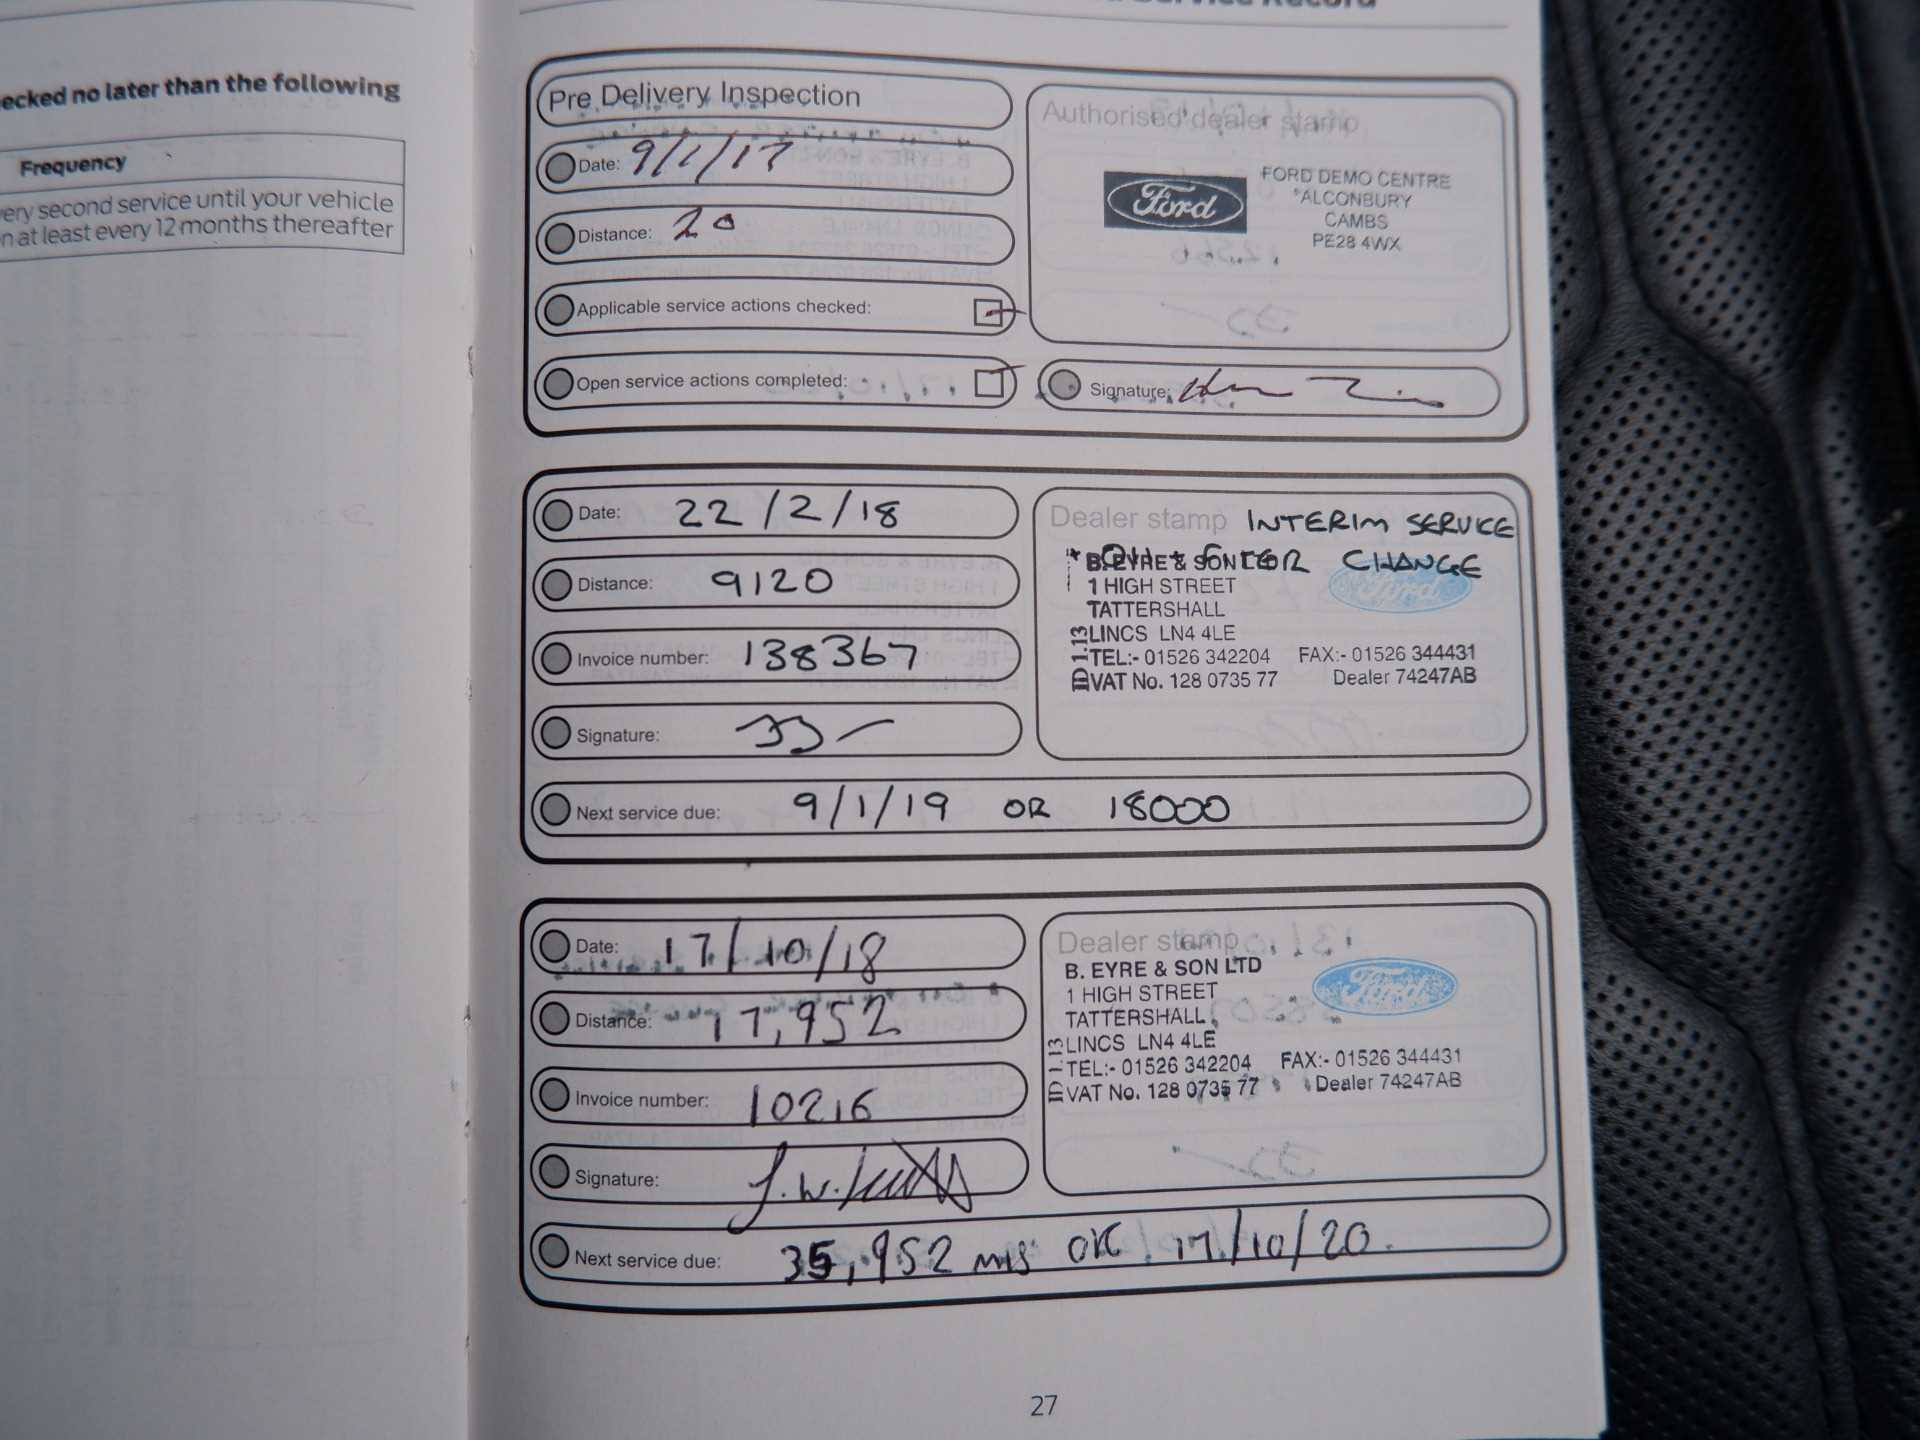 ecked no later than the following
Frequency
very second service until your vehicle
n at least every 12 months thereafter
Service Record
Pre Delivery Inspection
Date: 9/1/17
Distance: 20
Applicable service actions checked:
Open service actions completed:
Authorised dealer stamp
Ford
FORD DEMO CENTRE
ALCONBURY
CAMBS
PE28 4WX
Signature:
Date: 22/2/18
Distance: 9120
Invoice number: 138367
Signature:
Dealer stamp INTERIM SERVICE
OIL & FILTER CHANGE
B. EYRE & SON LTD
Ford
1 HIGH STREET
TATTERSHALL
LINCS LN4 4LE
TEL:- 01526 342204 FAX:- 01526 344431
VAT No. 128 0735 77 Dealer 74247AB
ID 1.13
Next service due: 9/1/19 OR 18000
Date: 17/10/18
Distance: 17,952
Invoice number: 10216
Signature:
Dealer stamp
B. EYRE & SON LTD
Ford
1 HIGH STREET
TATTERSHALL
LINCS LN4 4LE
TEL:- 01526 342204 FAX:- 01526 344431
VAT No. 128 0735 77 Dealer 74247AB
ID 1.13
Next service due: 35,952 mls OR 17/10/20.
27